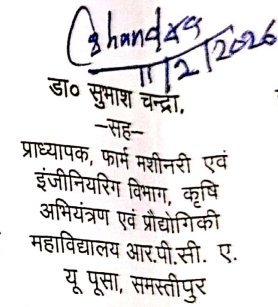 Chandra
11/2/2026
डा० सुमाश चन्द्रा,
—सह—
प्राध्यापक, फार्म मशीनरी एवं
इंजीनियरिग विभाग, कृषि
अभियंत्रण एवं प्रौद्योगिकी
महाविद्यालय आर.पी.सी. ए.
यू पूसा, समस्तीपुर